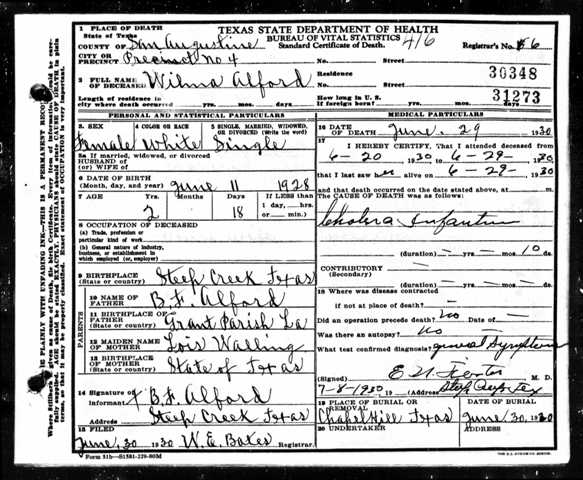 1 PLACE OF DEATH
State of Texas
TEXAS STATE DEPARTMENT OF HEALTH
BUREAU OF VITAL STATISTICS
Standard Certificate of Death. 416
COUNTY OF San Augustine
Registrar's No. 6
CITY OR PRECINCT Precinct No 4
No. Street
2 FULL NAME OF DECEASED Wilma Alford
Residence 30348
No. Street
Length of residence in city where death occurred yrs. mos. ds.
How long in U. S. if foreign born? yrs. mos. ds.
31273
PERSONAL AND STATISTICAL PARTICULARS
3. SEX 4 COLOR OR RACE 5 SINGLE, MARRIED, WIDOWED, OR DIVORCED (Write the word)
Female White Single
5a If married, widowed, or divorced
HUSBAND OF
(or) WIFE OF
6 DATE OF BIRTH
(Month, day, and year) June 11 1928
7 AGE Years Months Days If LESS than
1 day,....hrs.
or ....min.
2 18
8 OCCUPATION OF DECEASED
(a) Trade, profession or
particular kind of work
(b) General nature of industry,
business, or establishment in
which employed (or employer)
9 BIRTHPLACE
(State or country) Steep Creek Texas
PARENTS
10 NAME OF FATHER B. F. Alford
11 BIRTHPLACE OF FATHER
(State or country) Grant Parish La
12 MAIDEN NAME OF MOTHER Lois Walling
13 BIRTHPLACE OF MOTHER
(State or country) State of Texas
14 Signature of
Informant B. F. Alford
Address Steep Creek Texas
15 FILED
June, 30 1930 W. E. Bates Registrar.
MEDICAL PARTICULARS
16 DATE OF DEATH June. 29 1930
17 I HEREBY CERTIFY, That I attended deceased from
6-20 1930 to 6-29- 1930
that I last saw her alive on 6-29- 1930
and that death occurred on the date stated above, at m.
The CAUSE OF DEATH was as follows:
Cholera Infantum
(duration) yrs. mos. 10 ds.
CONTRIBUTORY
(Secondary)
(duration) yrs. mos. ds.
18 Where was disease contracted
if not at place of death?
Did an operation precede death? No Date of
Was there an autopsy? No
What test confirmed diagnosis? general Symptoms
(Signed) M. D.
7-8-1930, 19 (Address)
19 PLACE OF BURIAL OR REMOVAL DATE OF BURIAL
Chapel Hill Texas June 30 1930
20 UNDERTAKER ADDRESS
Form 51b-S1581-229-80M